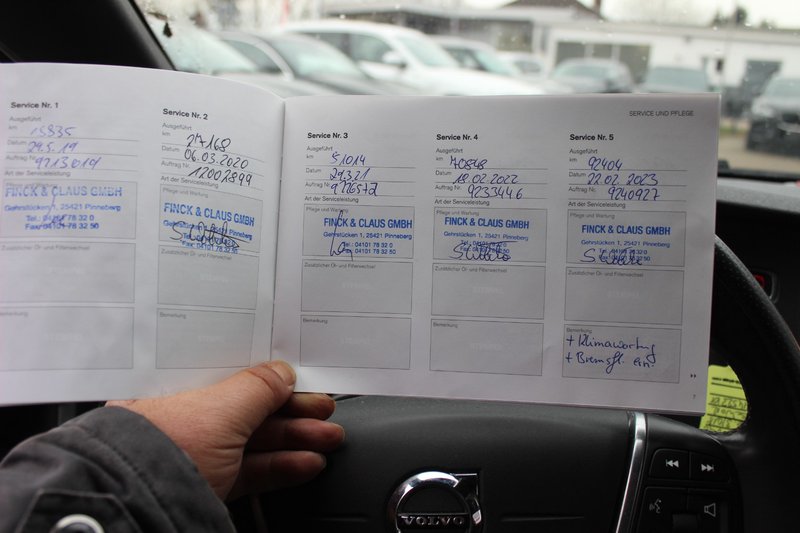 Service Nr. 1
Ausgeführt
km 15835
Datum 29.5.19
Auftrag Nr. 9213019
Art der Serviceleistung
FINCK & CLAUS GMBH
Gehrstücken 1, 25421 Pinneberg
Tel.: 04101 78 32 0
Fax: 04101 78 32 50
Zusätzlicher Öl- und Filterwechsel
Bemerkung
Service Nr. 2
Ausgeführt
km 27168
Datum 06.03.2020
Auftrag Nr. 12002899
Art der Serviceleistung
Pflege und Wartung
FINCK & CLAUS GMBH
Gehrstücken 1, 25421 Pinneberg
Fax: 04101 78 32 50
Zusätzlicher Öl- und Filterwechsel
Bemerkung
SERVICE UND PFLEGE
Service Nr. 3
Ausgeführt
km 51014
Datum 29.3.21
Auftrag Nr.
Art der Serviceleistung
Pflege und Wartung
FINCK & CLAUS GMBH
Gehrstücken 1, 25421 Pinneberg
Tel.: 04101 78 32 0
Fax: 04101 78 32 50
Zusätzlicher Öl- und Filterwechsel
Bemerkung
Service Nr. 4
Ausgeführt
km 70848
Datum 18.02.2022
Auftrag Nr. 9233446
Art der Serviceleistung
Pflege und Wartung
FINCK & CLAUS GMBH
Gehrstücken 1, 25421 Pinneberg
Zusätzlicher Öl- und Filterwechsel
Bemerkung
Service Nr. 5
Ausgeführt
km 92404
Datum 22.02.2023
Auftrag Nr. 9240927
Art der Serviceleistung
Pflege und Wartung
FINCK & CLAUS GMBH
Gehrstücken 1, 25421 Pinneberg
Zusätzlicher Öl- und Filterwechsel
Bemerkung
+ Klimawartung
+ Bremsfl. ein.
7
VOLVO